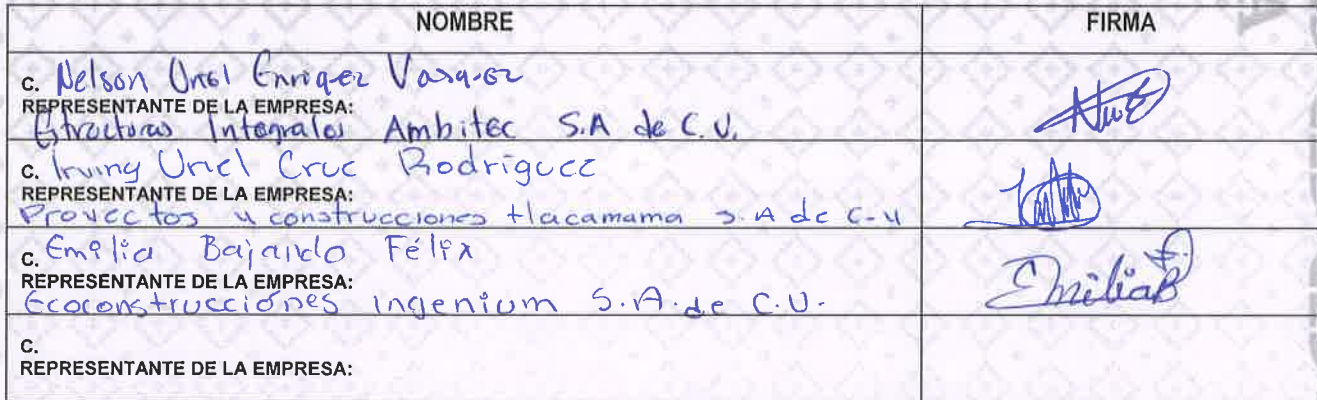 NOMBRE FIRMA
C. Nelson Uriel Enriquez Vasquez
REPRESENTANTE DE LA EMPRESA:
Estructuras Integrales Ambitec S.A de C.V.
C. Irving Uriel Cruz Rodriguez
REPRESENTANTE DE LA EMPRESA:
Proyectos y construcciones tlacamama S.A de C.V
C. Emilia Bajando Félix
REPRESENTANTE DE LA EMPRESA:
Ecoconstrucciónes Ingenium S.A. de C.V.
EmiliaB F.
C.
REPRESENTANTE DE LA EMPRESA: